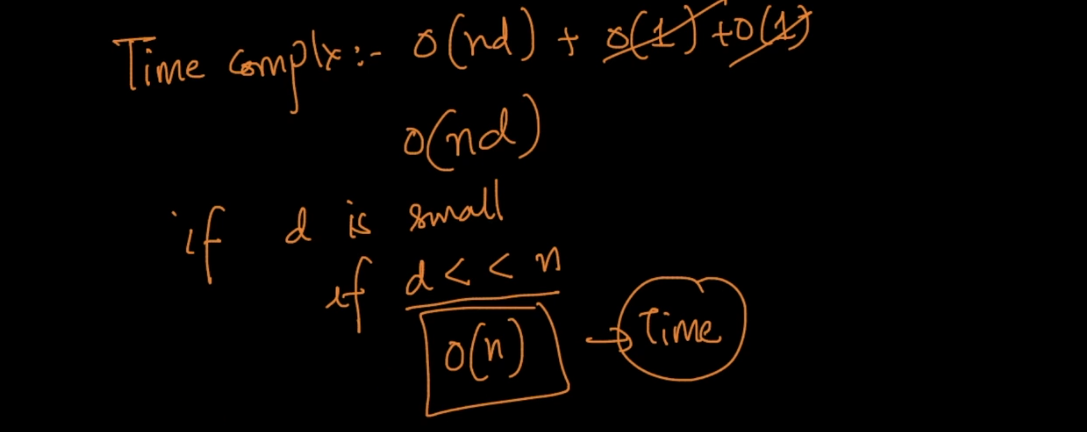 Time complx:- O(nd) + O(1) + O(1)
O(nd)
if d is small
if d < < n
O(n) → Time